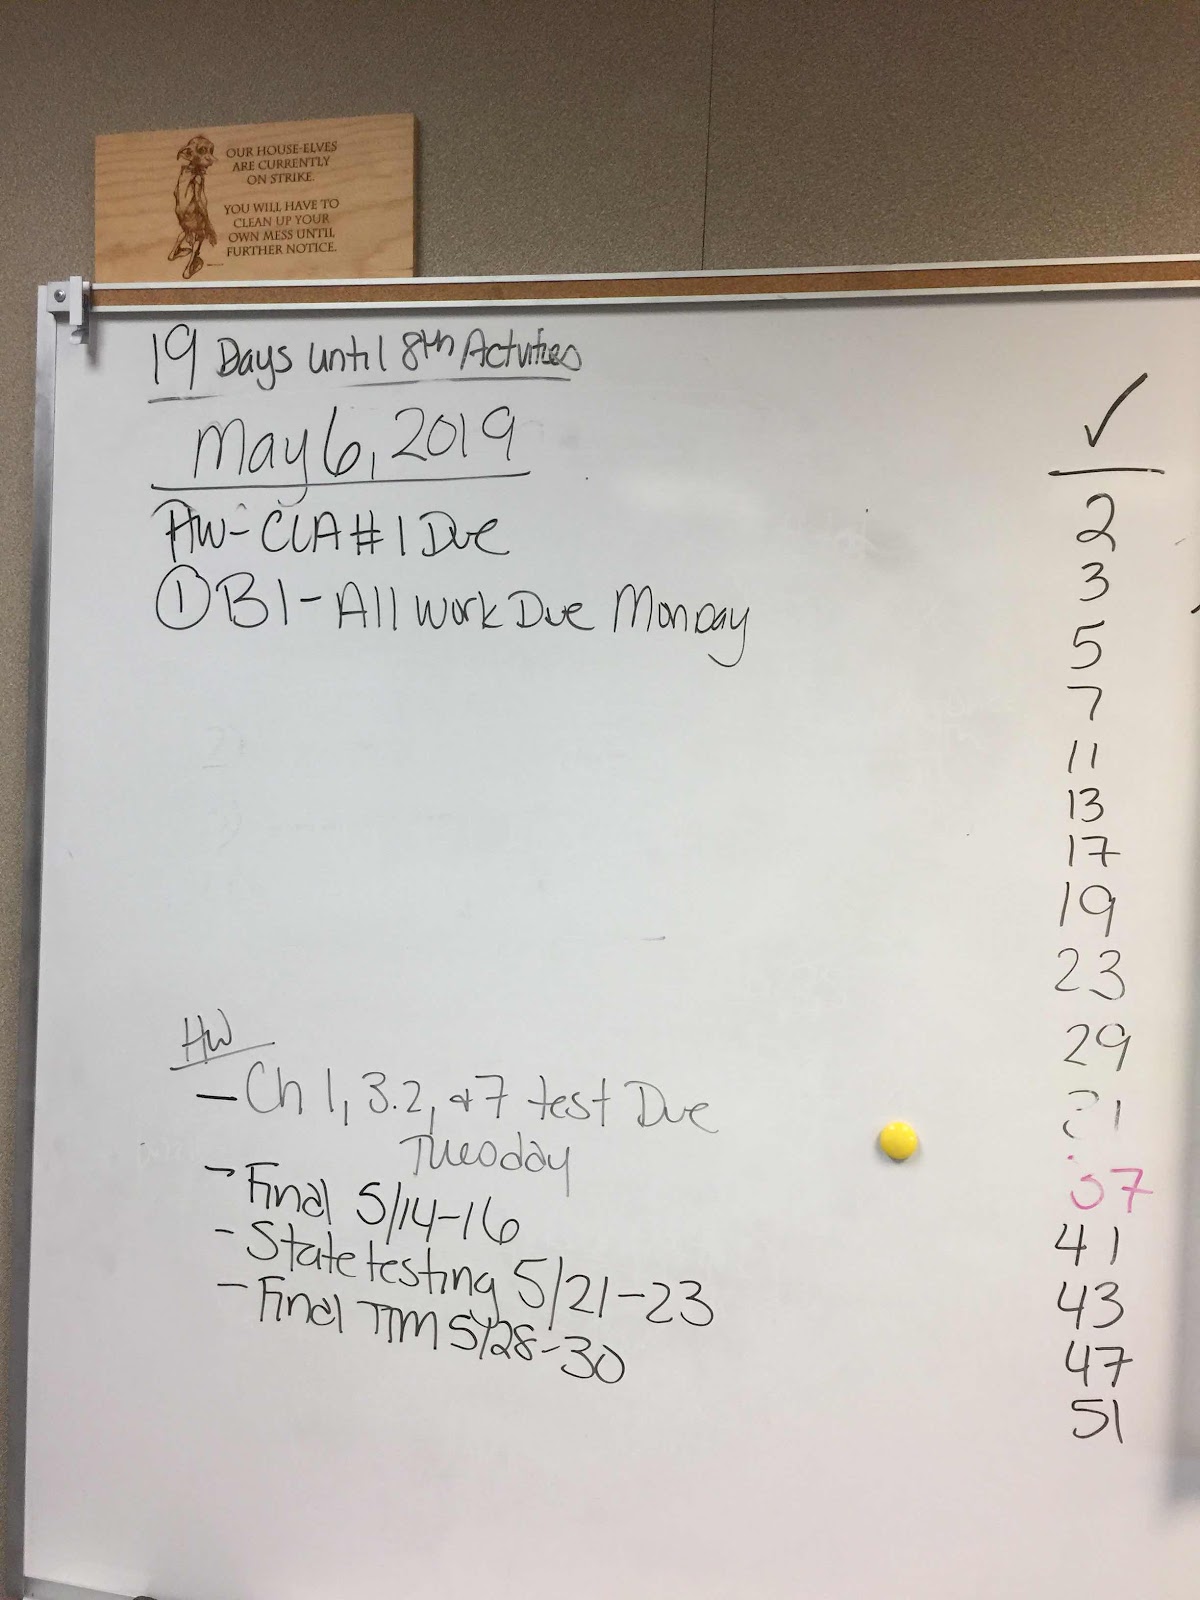 OUR HOUSE-ELVES
ARE CURRENTLY
ON STRIKE.
YOU WILL HAVE TO
CLEAN UP YOUR
OWN MESS UNTIL
FURTHER NOTICE.
19 Days until 8th Activities
May 6, 2019
HW - CLA #1 Due
① B1 - All work Due Monday
HW
- Ch 1, 3.2, + 7 test Due
Tuesday
- Final 5/14-16
- State testing 5/21-23
- Final TTM 5/28-30
✓
2
3
5
7
11
13
17
19
23
29
31
37
41
43
47
51